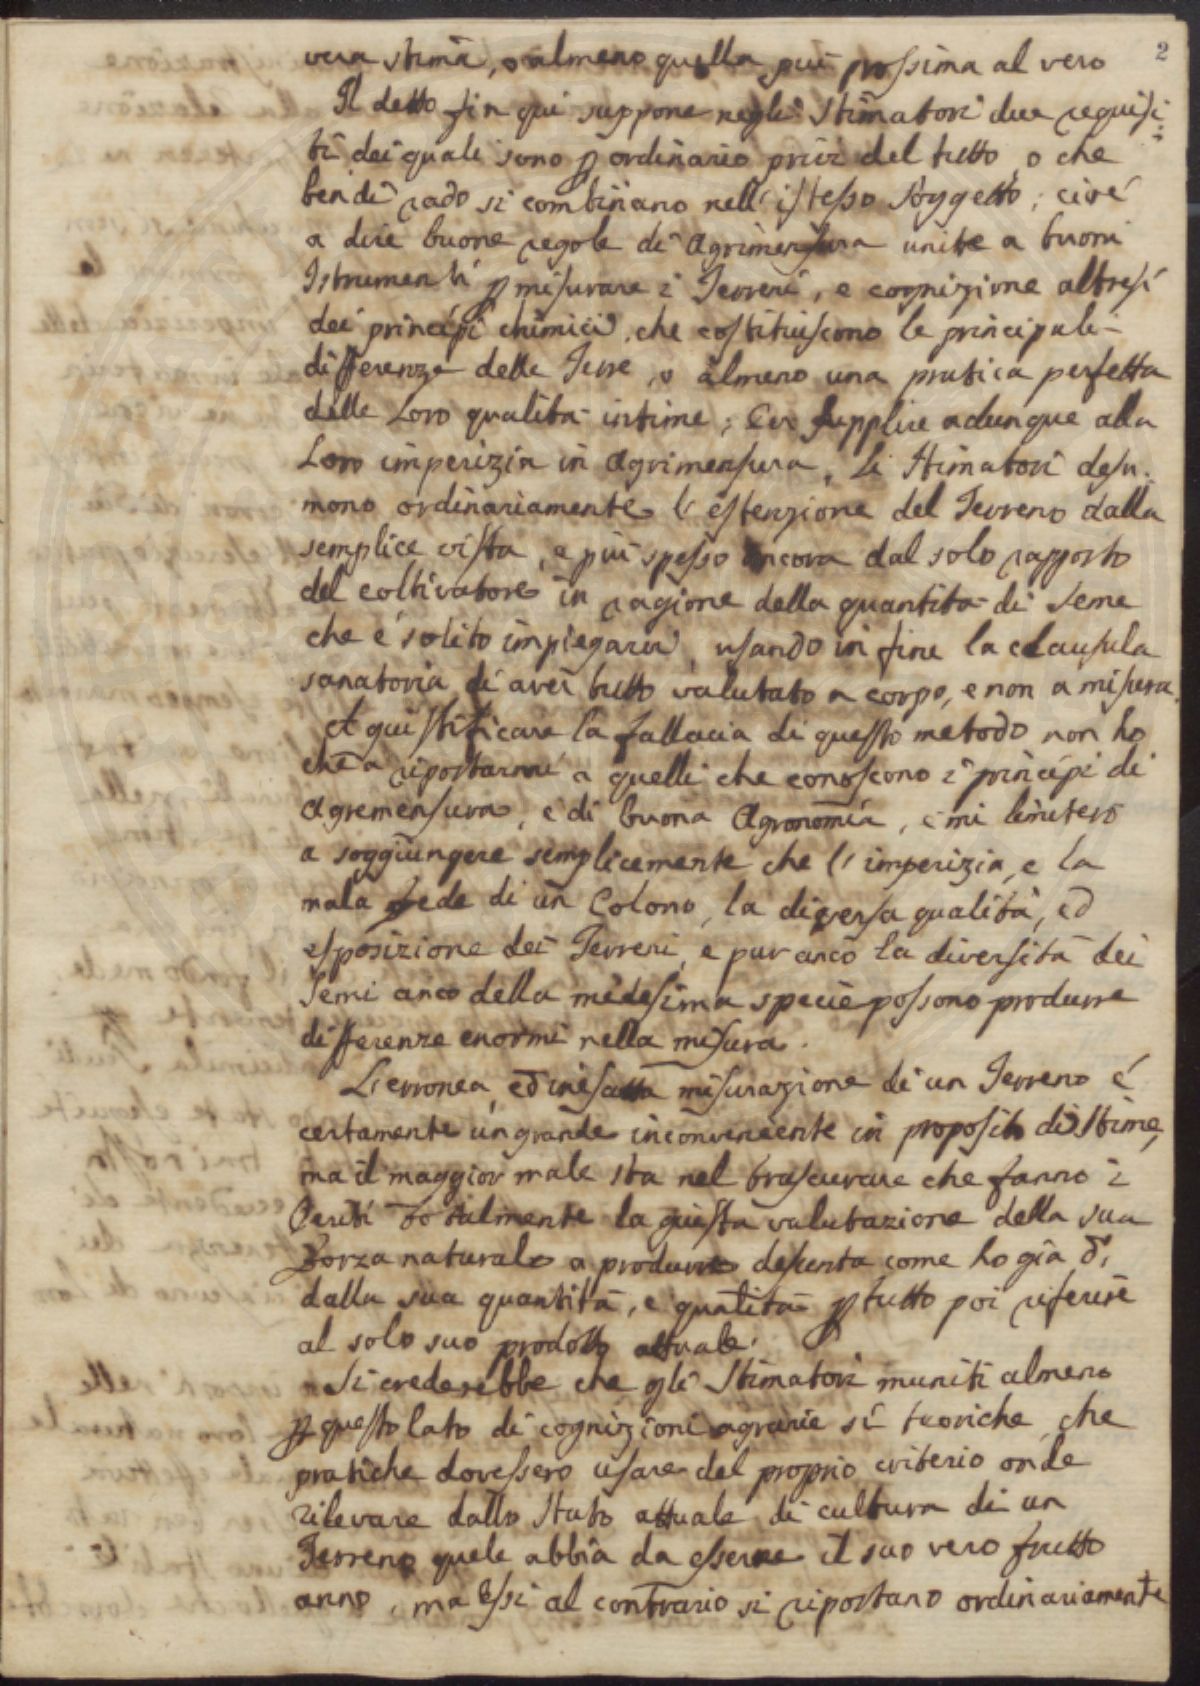 2
vera stima, o almeno quella più prossima al vero
Il detto fin qui suppone negli Stimatori due requisi:
ti dei quali sono p ordinario privi del tutto, o che
ben di rado si combinano nell' istesso Soggetto; cioé
a dire buone regole di Agrimensura unite a buoni
Istrumenti p misurare i Terreni, e cognizione altresí
dei principi chimici, che costituiscono le principali
differenze delle Terre, o almeno una pratica perfetta
delle Loro qualità intime; Per supplire adunque alla
Loro imperizia in Agrimensura, li Stimatori desu.
mono ordinariamente l' estenzione del Terreno dalla
semplice vista, e più spesso ancora dal solo rapporto
del coltivatore in ragione della quantità di seme
che é solito impiegarvi, usando in fine la clausula
sanatoria di aver tutto valutato a corpo, e non a misura.
A giustificare la fallacia di questo metodo non ho
che a riportarmi a quelli che conoscono i principi di
Agremensura, e di buona Agronomia, e mi limiterò
a soggiungere semplicemente che l' imperizia, e la
mala fede di un Colono, la diversa qualità, ed
esposizione dei Terreni, e pur anco la diversità dei
Semi anco della medesima specie possono produrre
differenze enormi nella misura.
L'erronea, ed inesatta misurazione di un Terreno é
certamente un grande inconveniente in proposito di Stime,
ma il maggior male sta nel trascurare che fanno i
Periti totalmente la giusta valutazione della sua
Forza naturale a produrre desunta come ho già d.
dalla sua quantità, e qualità p tutto poi riferire
al solo suo prodotto attuale.
Si crederebbe che gli Stimatori muniti almeno
p questo lato di cognizioni agrarie sí teoriche, che
pratiche dovessero usare del proprio criterio onde
rilevare dallo Stato attuale di cultura di un
Terreno quale abbia da essere il suo vero frutto
anno, ma Essi al contrario si riportano ordinariamente